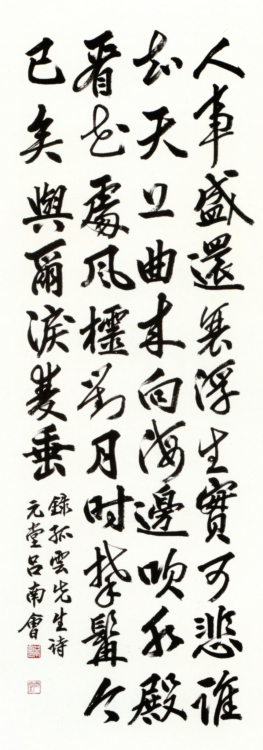 人事盛還衰浮生實可悲誰
知天上曲來向海邊吹水殿
看花處風欞對月時攀髯今
已矣與爾淚雙垂
錄孤雲先生詩
元堂呂南會